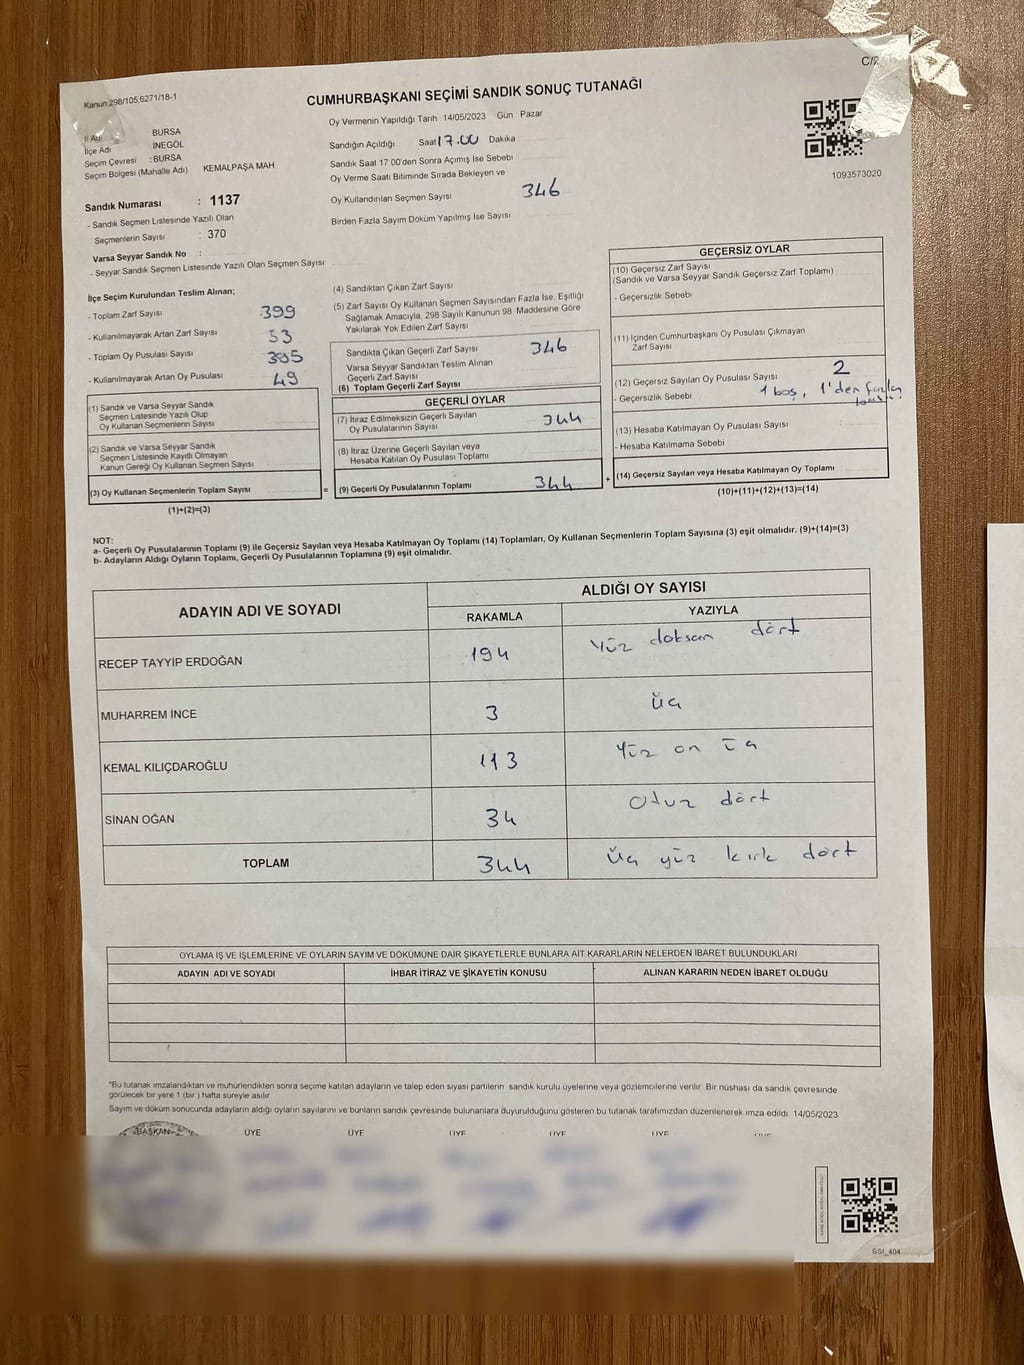 Kanun:298/105;6271/18-1
C/2
CUMHURBAŞKANI SEÇİMİ SANDIK SONUÇ TUTANAĞI
İl Adı BURSA
İlçe Adı İNEGÖL
Seçim Çevresi : BURSA
Seçim Bölgesi (Mahalle Adı) KEMALPAŞA MAH
Sandık Numarası : 1137
- Sandık Seçmen Listesinde Yazılı Olan
Seçmenlerin Sayısı : 370
Varsa Seyyar Sandık No :
- Seyyar Sandık Seçmen Listesinde Yazılı Olan Seçmen Sayısı
Oy Vermenin Yapıldığı Tarih : 14/05/2023 Gün Pazar
Sandığın Açıldığı Saat 17.00 Dakika
Sandık Saat 17:00'den Sonra Açımış İse Sebebi
Oy Verme Saati Bitiminde Sırada Bekleyen ve
Oy Kullandırılan Seçmen Sayısı 346
Birden Fazla Sayım Döküm Yapılmış İse Sayısı
1093573020
İlçe Seçim Kurulundan Teslim Alınan;
- Toplam Zarf Sayısı 399
- Kullanılmayarak Artan Zarf Sayısı 53
- Toplam Oy Pusulası Sayısı 395
- Kullanılmayarak Artan Oy Pusulası 49
(1) Sandık ve Varsa Seyyar Sandık
Seçmen Listesinde Yazılı Olup
Oy Kullanan Seçmenlerin Sayısı
(2) Sandık ve Varsa Seyyar Sandık
Seçmen Listesinde Kayıtlı Olmayan
Kanun Gereği Oy Kullanan Seçmen Sayısı
(3) Oy Kullanan Seçmenlerin Toplam Sayısı
(1)+(2)=(3)
=
(4) Sandıktan Çıkan Zarf Sayısı
(5) Zarf Sayısı Oy Kullanan Seçmen Sayısından Fazla İse, Eşitliği
Sağlamak Amacıyla, 298 Sayılı Kanunun 98. Maddesine Göre
Yakılarak Yok Edilen Zarf Sayısı
Sandıkta Çıkan Geçerli Zarf Sayısı 346
Varsa Seyyar Sandıktan Teslim Alınan
Geçerli Zarf Sayısı
(6) Toplam Geçerli Zarf Sayısı
GEÇERLİ OYLAR
(7) İtiraz Edilmeksizin Geçerli Sayılan
Oy Pusulalarının Sayısı 344
(8) İtiraz Üzerine Geçerli Sayılan veya
Hesaba Katılan Oy Pusulası Toplamı
(9) Geçerli Oy Pusulalarının Toplamı 344
+
GEÇERSİZ OYLAR
(10) Geçersiz Zarf Sayısı
(Sandık ve Varsa Seyyar Sandık Geçersiz Zarf Toplamı)
- Geçersizlik Sebebi
(11) İçinden Cumhurbaşkanı Oy Pusulası Çıkmayan
Zarf Sayısı
(12) Geçersiz Sayılan Oy Pusulası Sayısı 2
- Geçersizlik Sebebi 1 boş, 1'den fazla
(13) Hesaba Katılmayan Oy Pusulası Sayısı
- Hesaba Katılmama Sebebi
(14) Geçersiz Sayılan veya Hesaba Katılmayan Oy Toplamı
(10)+(11)+(12)+(13)=(14)
NOT:
a- Geçerli Oy Pusulalarının Toplamı (9) ile Geçersiz Sayılan veya Hesaba Katılmayan Oy Toplamı (14) Toplamları, Oy Kullanan Seçmenlerin Toplam Sayısına (3) eşit olmalıdır. (9)+(14)=(3)
b- Adayların Aldığı Oyların Toplamı, Geçerli Oy Pusulalarının Toplamına (9) eşit olmalıdır.
ADAYIN ADI VE SOYADI ALDIĞI OY SAYISI
RAKAMLA YAZIYLA
RECEP TAYYİP ERDOĞAN 194 Yüz doksan dört
MUHARREM İNCE 3 üç
KEMAL KILIÇDAROĞLU 113 Yüz on üç
SİNAN OĞAN 34 Otuz dört
TOPLAM 344 üç yüz kırk dört
OYLAMA İŞ VE İŞLEMLERİNE VE OYLARIN SAYIM VE DÖKÜMÜNE DAİR ŞİKAYETLERLE BUNLARA AİT KARARLARIN NELERDEN İBARET BULUNDUKLARI
ADAYIN ADI VE SOYADI İHBAR İTİRAZ VE ŞİKAYETİN KONUSU ALINAN KARARIN NEDEN İBARET OLDUĞU
"Bu tutanak imzalandıktan ve mühürlendikten sonra seçime katılan adayların ve talep eden siyasi partilerin sandık kurulu üyelerine veya gözlemcilerine verilir. Bir nüshası da sandık çevresinde
görülecek bir yere 1 (bir ) hafta süreyle asılır.
Sayım ve döküm sonucunda adayların aldığı oyların sayılarını ve bunların sandık çevresinde bulunanlara duyurulduğunu gösteren bu tutanak tarafımızdan düzenlenerek imza edildi. 14/05/2023
BAŞKAN ÜYE ÜYE ÜYE ÜYE ÜYE
SSI_404